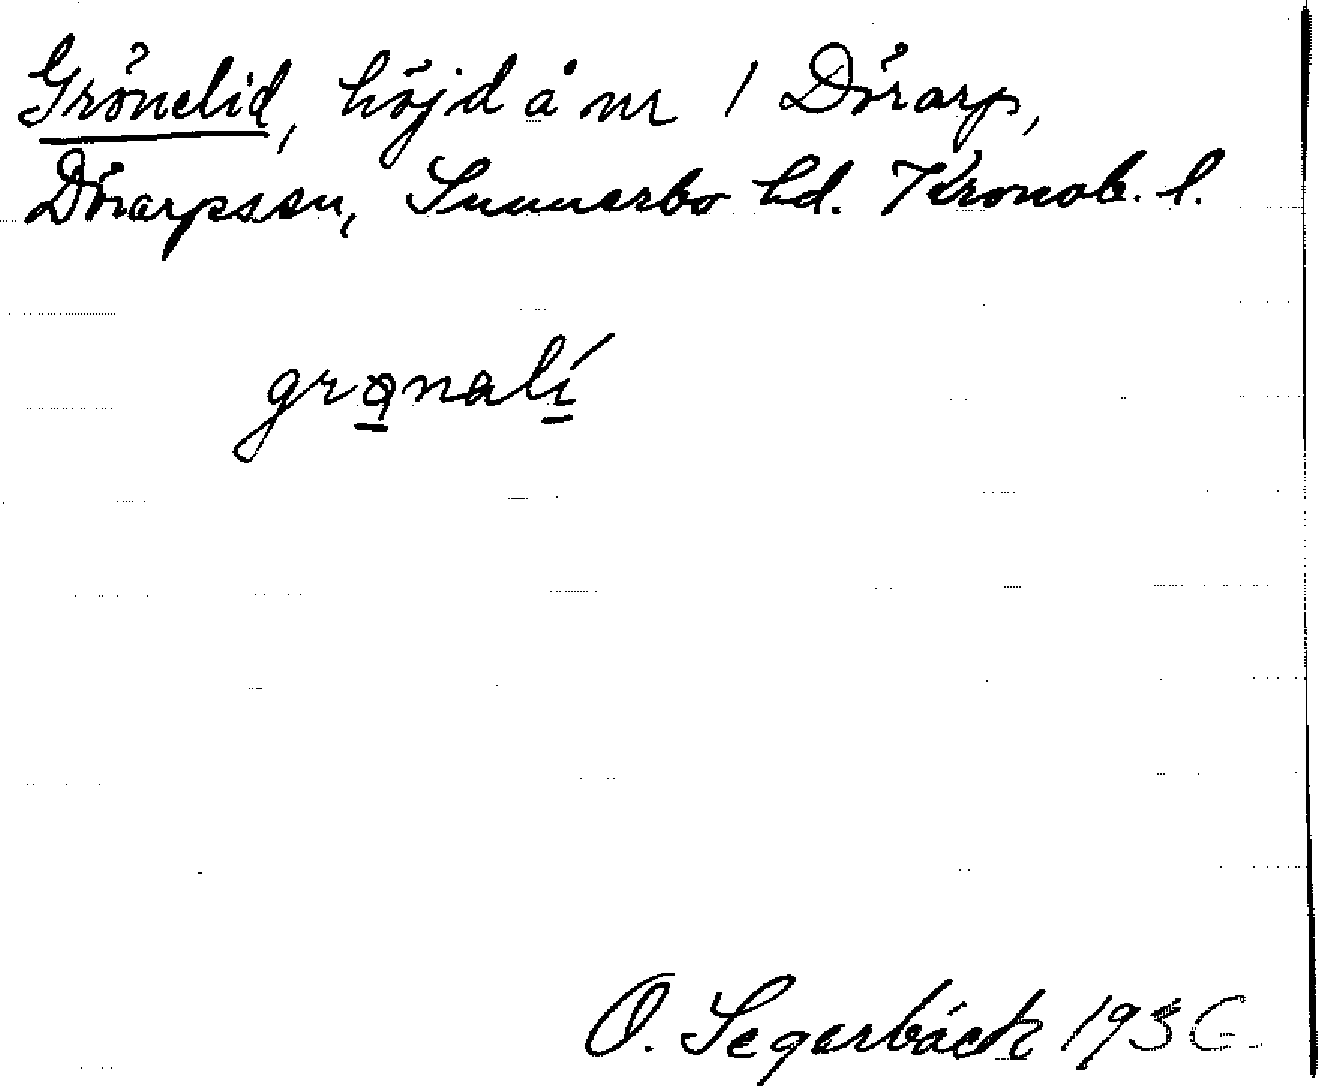 Grönelid, höjd å nr 1 Dörarp,
Dörarpssn, Sunnerbo hd. Kronob. l.
grønalí
O. Segerbäck 1936